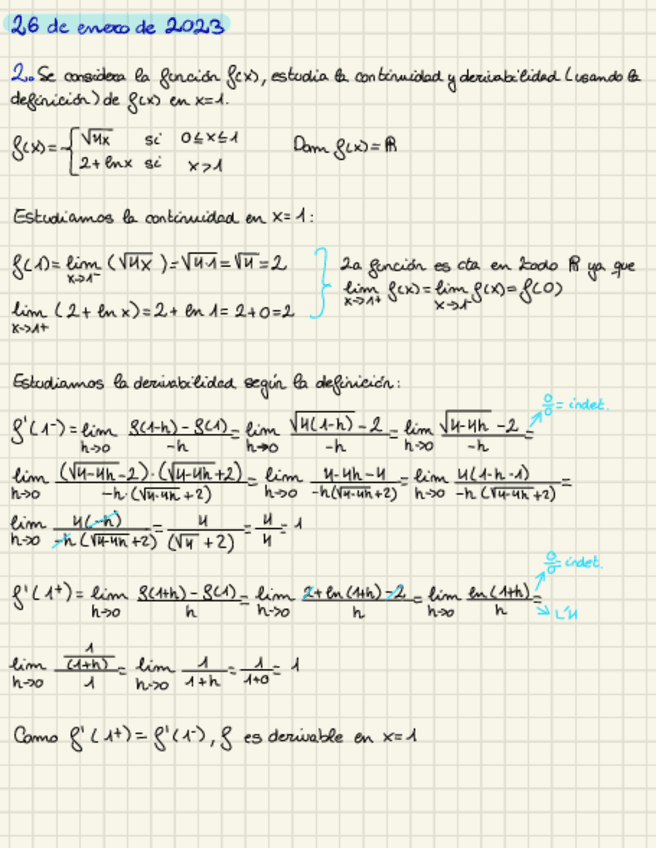 26 de enero de 2023
2. Se considera la función f(x), estudia la continuidad y derivabilidad (usando la
definición) de f(x) en x=1.
f(x)= { √4x si 0≤x≤1
2+lnx si x>1
Dom f(x)=ℝ
Estudiamos la continuidad en x=1:
f(1)= lim x→1⁻ (√4x)=√4·1=√4=2
lim x→1+ (2+ln x)=2+ln 1=2+0=2
La función es cta en todo ℝ ya que
lim x→1+ f(x)= lim x→1⁻ f(x)=f(0)
Estudiamos la derivabilidad según la definición:
f'(1⁻)= lim h→0 f(1-h)-f(1)/-h = lim h→0 √4(1-h)-2/-h = lim h→0 √4-4h-2/-h = 0/0= indet.
lim h→0 (√4-4h-2)·(√4-4h+2)/-h·(√4-4h+2) = lim h→0 4-4h-4/-h(√4-4h+2) = lim h→0 4(1-h-1)/-h(√4-4h+2) =
lim h→0 4(-h)/-h(√4-4h+2) = 4/(√4+2) = 4/4 = 1
f'(1+)= lim h→0 f(1+h)-f(1)/h = lim h→0 2+ln(1+h)-2/h = lim h→0 ln(1+h)/h = 0/0 indet.
L'H
lim h→0 1/(1+h)/1 = lim h→0 1/1+h = 1/1+0 = 1
Como f'(1+)=f'(1⁻), f es derivable en x=1